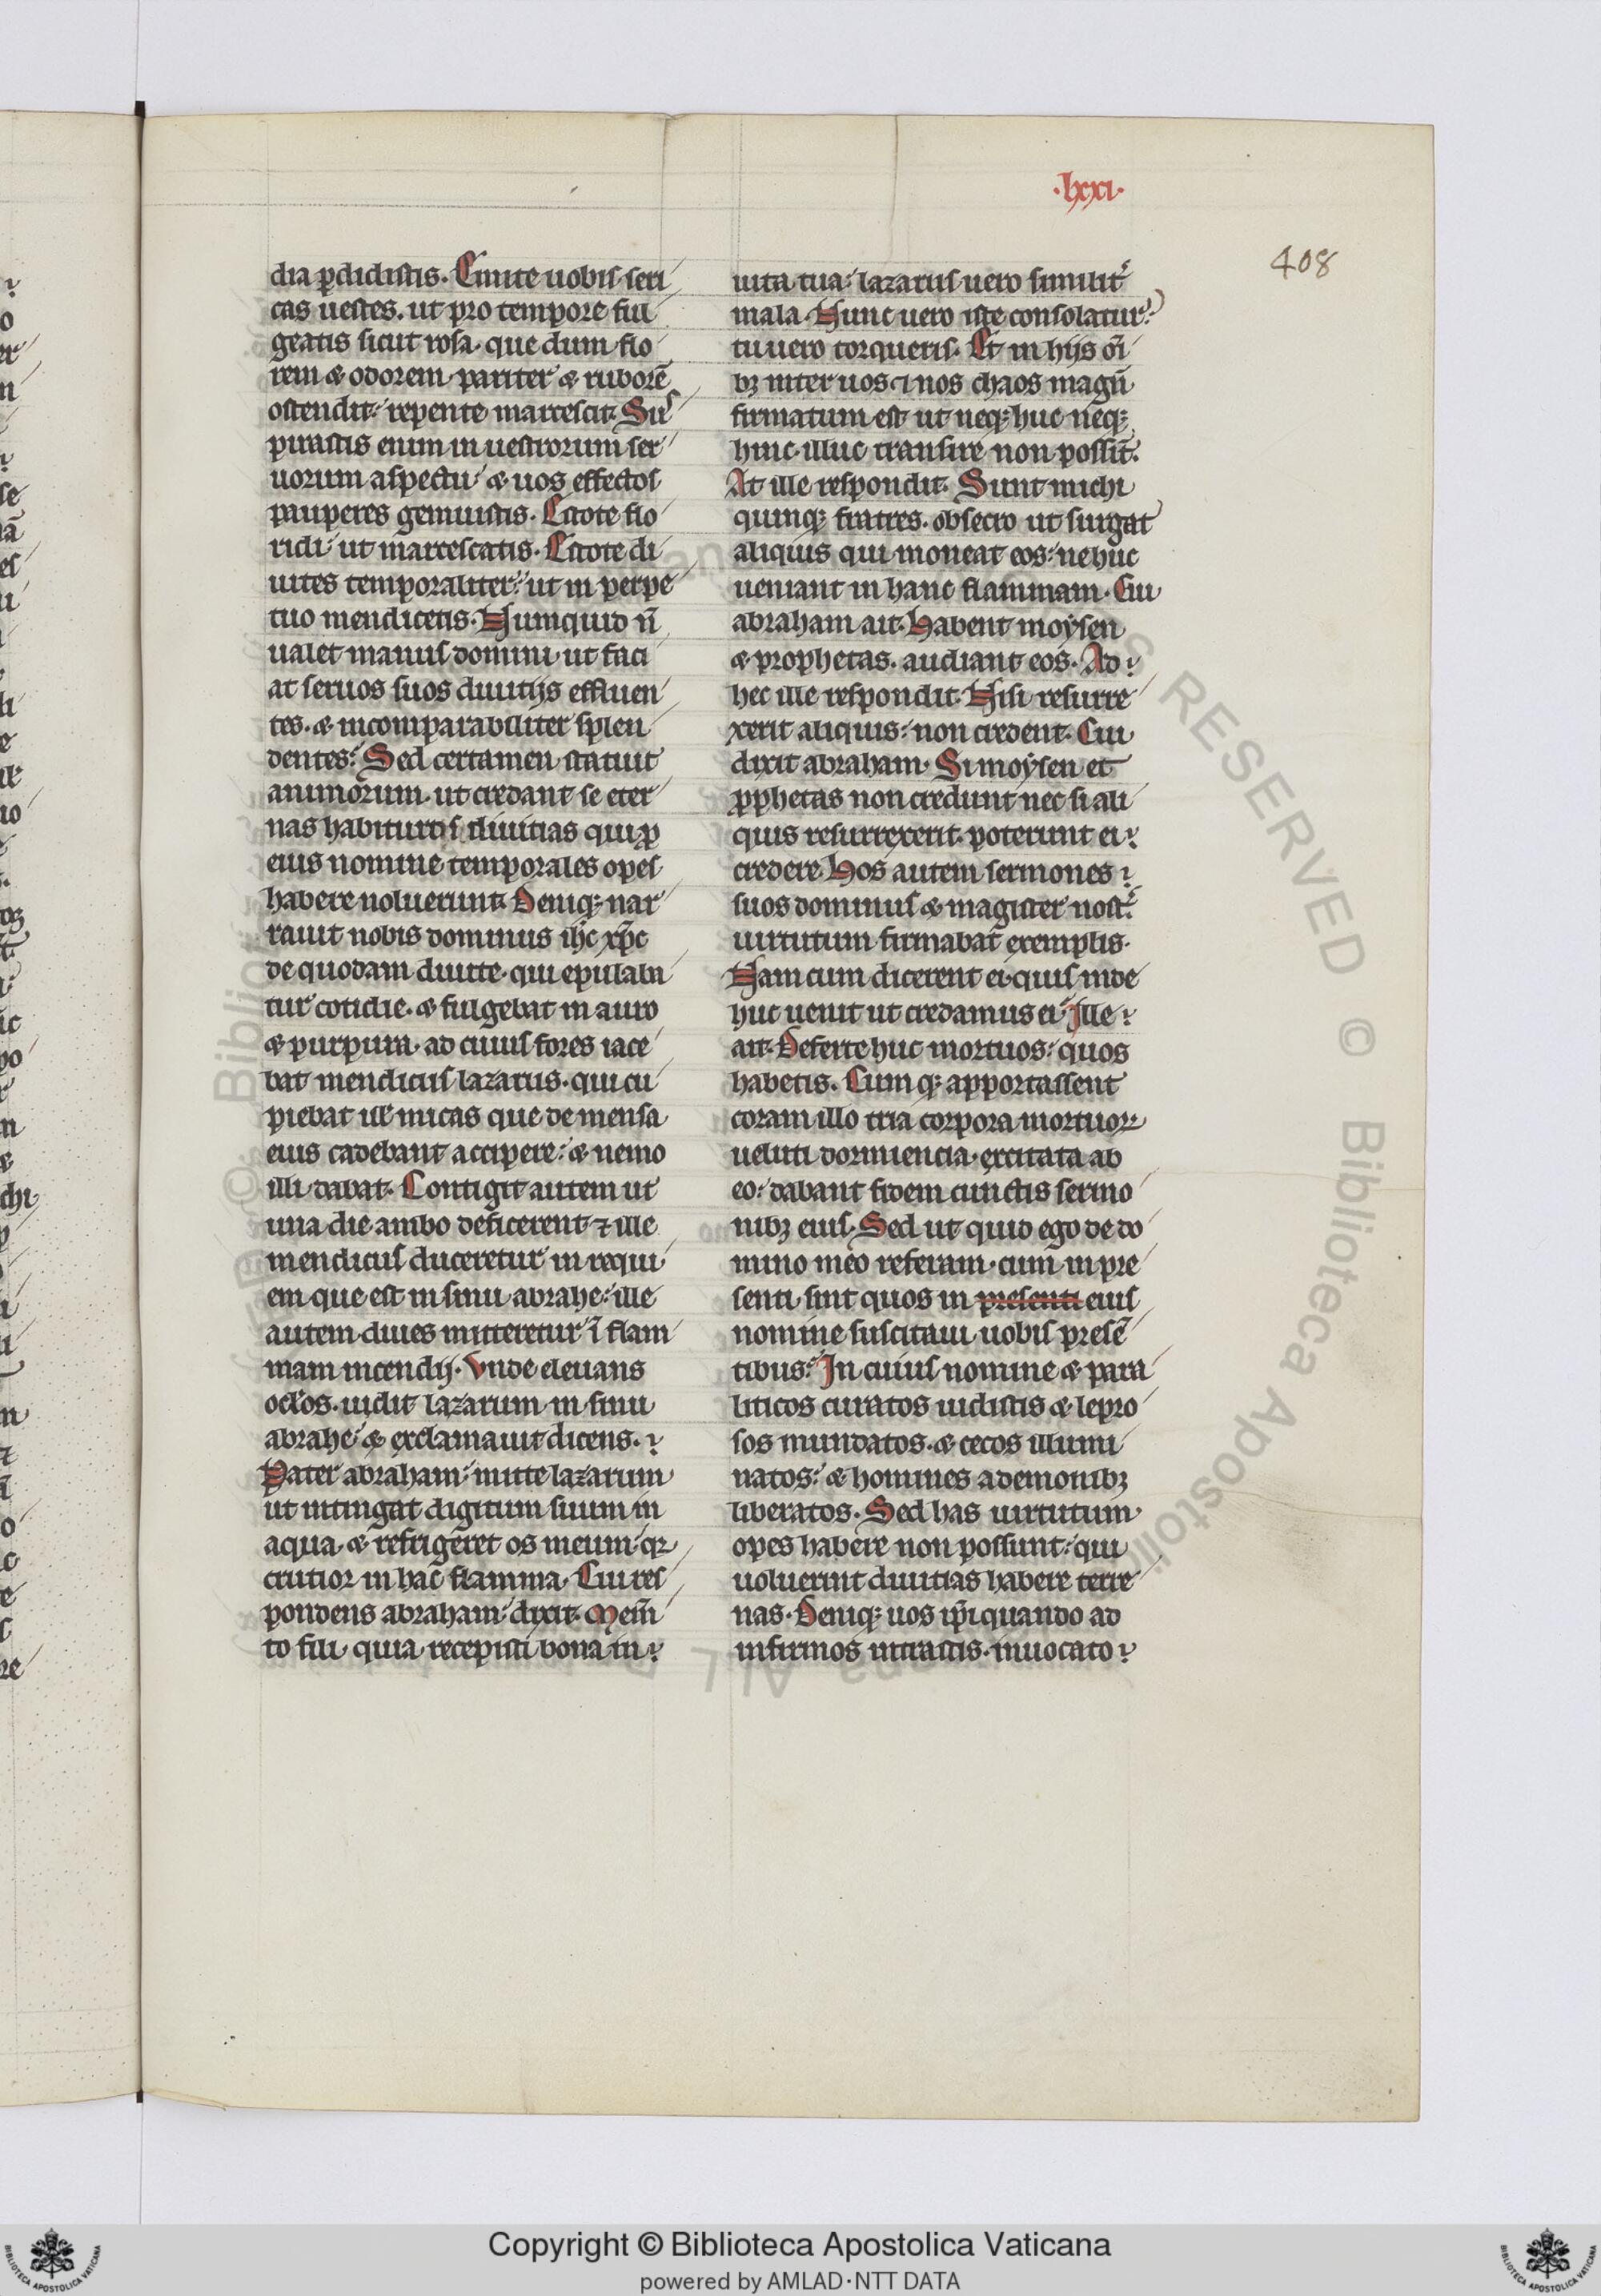 ·lxxi·
408
dia pdidistis. Emite uobis seri
cas uestes. ut pro tempore ful
geatis sicut rosa. que dum flo
rem & odorem pariter & ruborē
ostendit: repente marcescit. Sus
pirastis enim in uestrorum ser
uorum aspectu & uos effectos
pauperes gemuistis. Estote flo
ridi ut marcescatis. Estote di
uites temporaliter: ut in perpe
tuo mendicetis. Numquid ñ
ualet manus domini ut faci
at seruos suos diuitijs effluen
tes. & incomparabiliter splen
dentes? Sed certamen statuit
animorum. ut credant se eter
nas habituros diuitias qui ꝓ
eius nomine temporales opes
habere noluerunt. Deniqꝫ nar
rauit nobis dominus ih̄c xp̄c
de quodam diuite. qui epulaba
tur cotidie. & fulgebat in auro
& purpura. ad cuius fores iace
bat mendicus lazarus. qui cu
piebat uł micas que de mensa
eius cadebant accipere: & nemo
illi dabat. Contigit autem ut
una die ambo deficerent ⁊ ille
mendicus duceretur in requi
em que est in sinu abrahe: ille
autem diues mitteretur ī flam
mam incendij. Vnde eleuans
ocłos. uidit lazarum in sinu
abrahe & exclamauit dicens.
Pater abraham: mitte lazarum
ut intingat digitum suum in
aqua. & refrigeret os meum qꝛ
crutior in hac flamma. Cui res
pondens abraham dixit. Mem̄
to fili quia recepisti bona in
uita tua: lazarus uero similit͛
mala. Nunc uero iste consolatur:
tu uero torqueris. Et in hijs oī
bꝫ inter uos ⁊ nos chaos magnū
firmatum est ut neqꝫ huc neqꝫ
hinc illuc transire non possit̄.
At ille respondit. Sunt michi
quinqꝫ fratres. obsecro ut surgat
aliquis qui moneat eos: ne huc
ueniant in hanc flammam. Cui
abraham ait. Habent moysen
& prophetas. audiant eos. Ad
hec ille respondit. Nisi resurre
xerit aliquis: non credent. Cui
dixit abraham. Si moysen et
ꝓphetas non credunt nec si ali
quis resurrexerit. poterunt ei
credere. Hos autem sermones
suos dominus & magister nost͛
uirtutum firmabat exemplis.
Nam cum dicerent ei. quis inde
huc uenit ut credamus ei? Ille
ait. Deferte huc mortuos: quos
habetis. Cumqꝫ apportassent
coram illo tria corpora mortuoꝝ
ueluti dormiencia. excitata ab
eo: dabant fidem cunctis sermo
nibꝫ eius. Sed ut quid ego de do
mino meo referam. cum in pre
senti sint quos in presenti eius
nomine suscitaui uobis presē
tibus? In cuius nomine & para
liticos curatos uidistis & lepro
sos mundatos. & cecos illumi
natos: & homines a demonibꝫ
liberatos. Sed has uirtutum
opes habere non possunt: qui
uoluerint diuitias habere terre
nas. Deniqꝫ uos ip̄i quando ad
infirmos intrastis. inuocato
Copyright © Biblioteca Apostolica Vaticana
powered by AMLAD·NTT DATA